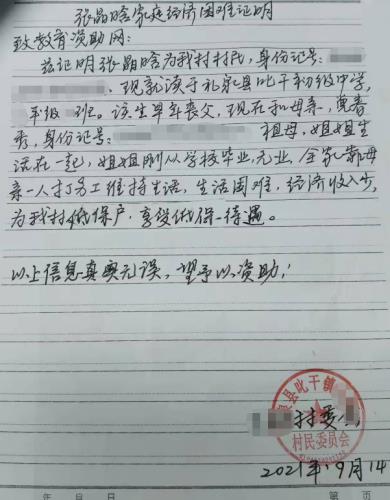 张晶晗家庭经济困难证明
致教育资助网：
兹证明张晶晗为我村村民，身份证号：
现就读于礼泉县叱干初级中学，
年级 班。该生早年丧父，现在和母亲，
秀，身份证号： 祖母，姐姐生
活在一起，姐姐刚从学校毕业，无业，全家靠母
亲一人打务工维持生活，生活困难，经济收入少，
为我村低保户，享受低保待遇。
以上信息真实无误，望予以资助！
泉县叱干镇
村委会
村民委员会
2021年9月14
年 月 日 第 页